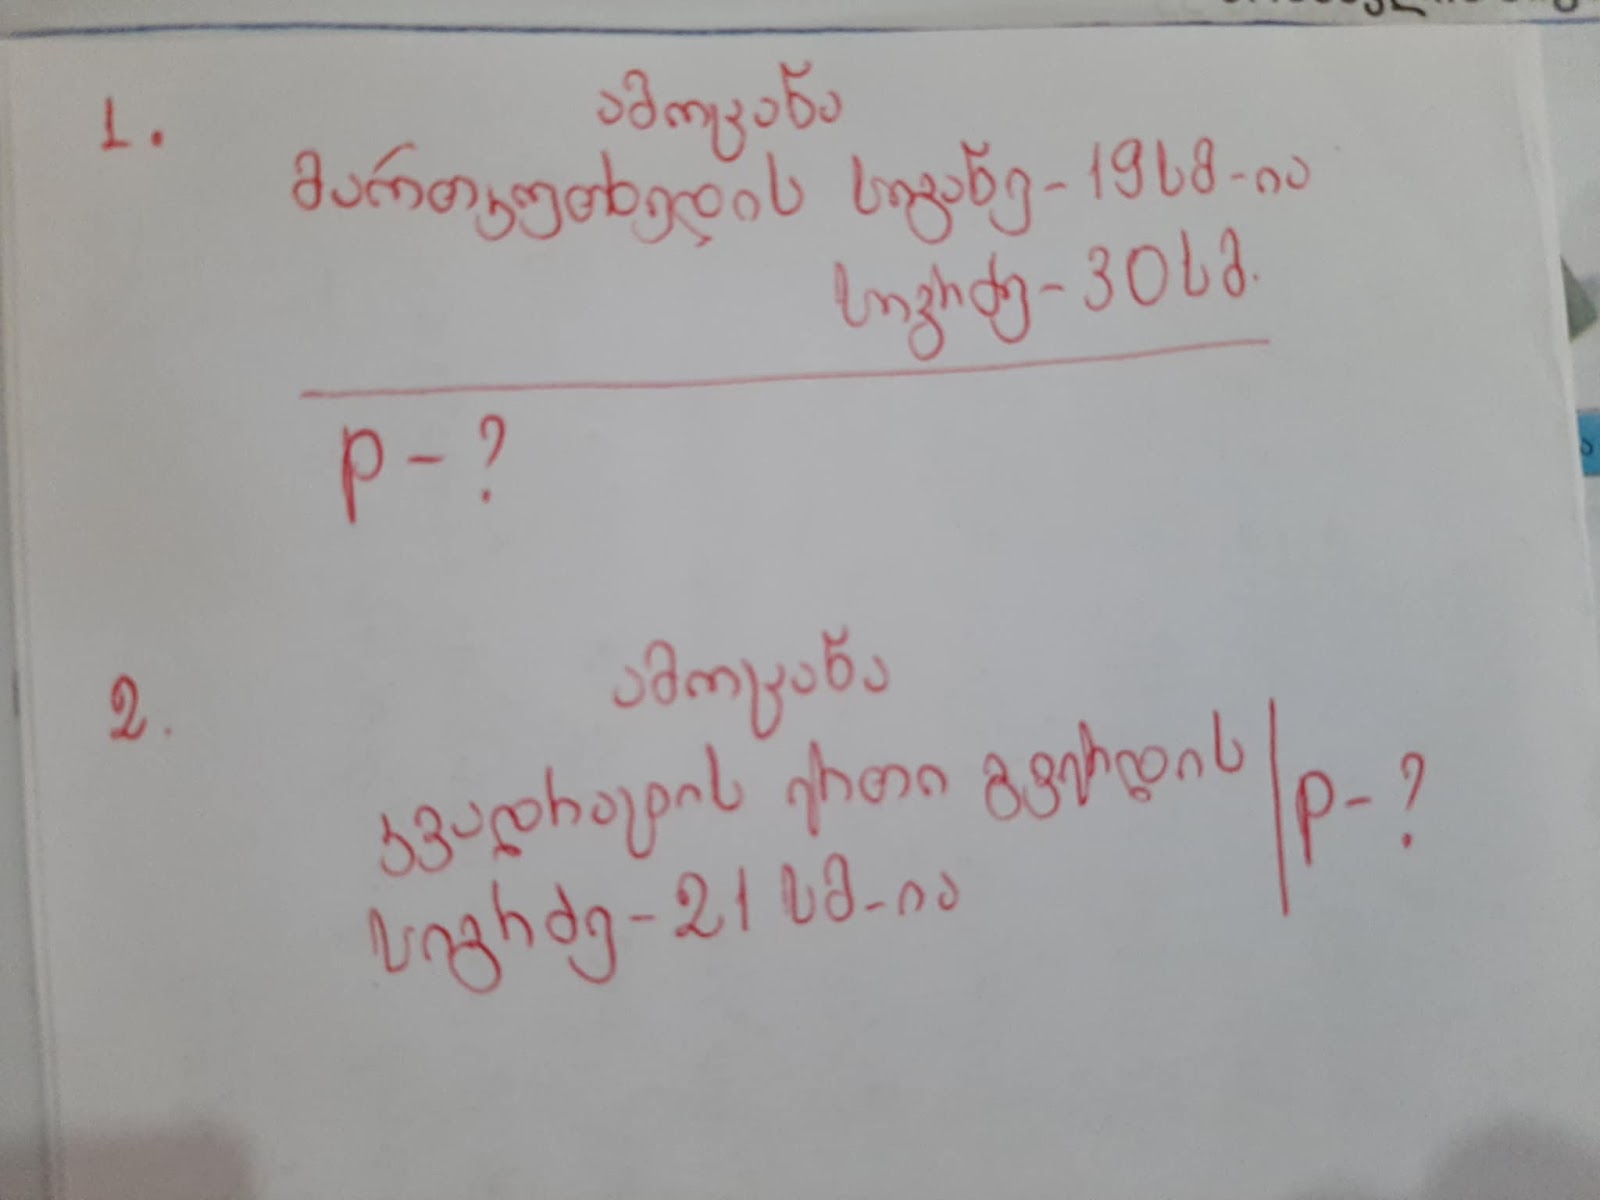 1. ამოცანა
მართკუთხედის სიგანე-19სმ-ია
სიგრძე-30სმ.
P-?
2. ამოცანა
კვადრატის ერთი გვერდის | P-?
სიგრძე-21 სმ-ია